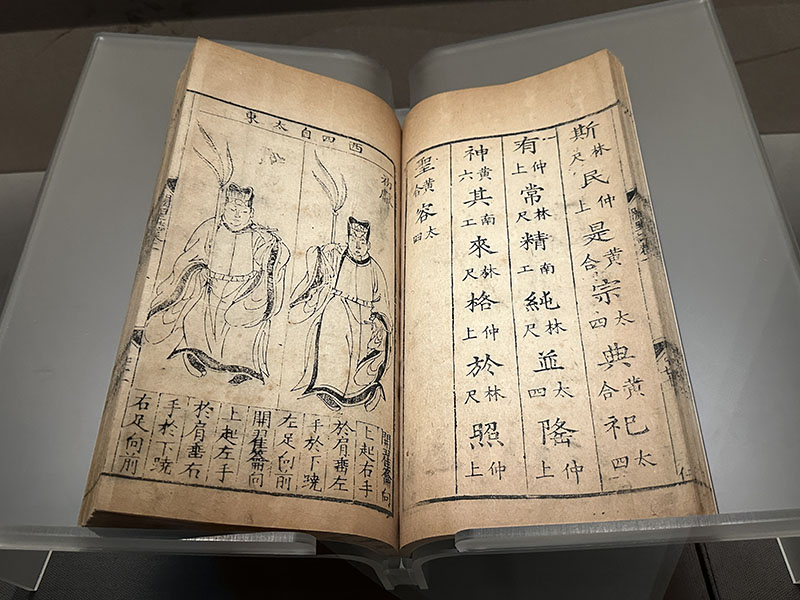 斯林尺民仲上是黃合宗太四典黃合祀太四
有仲上常林尺精南工純林尺並太四隆仲上
神黃六其南工來林尺格仲上於林尺照仲上
聖黃合容太四
仁
西四自太東
開翟籥向
上起右手
於肩垂左
手於下蹺
左足向前
開翟籥向
上起左手
於肩垂右
手於下蹺
右足向前